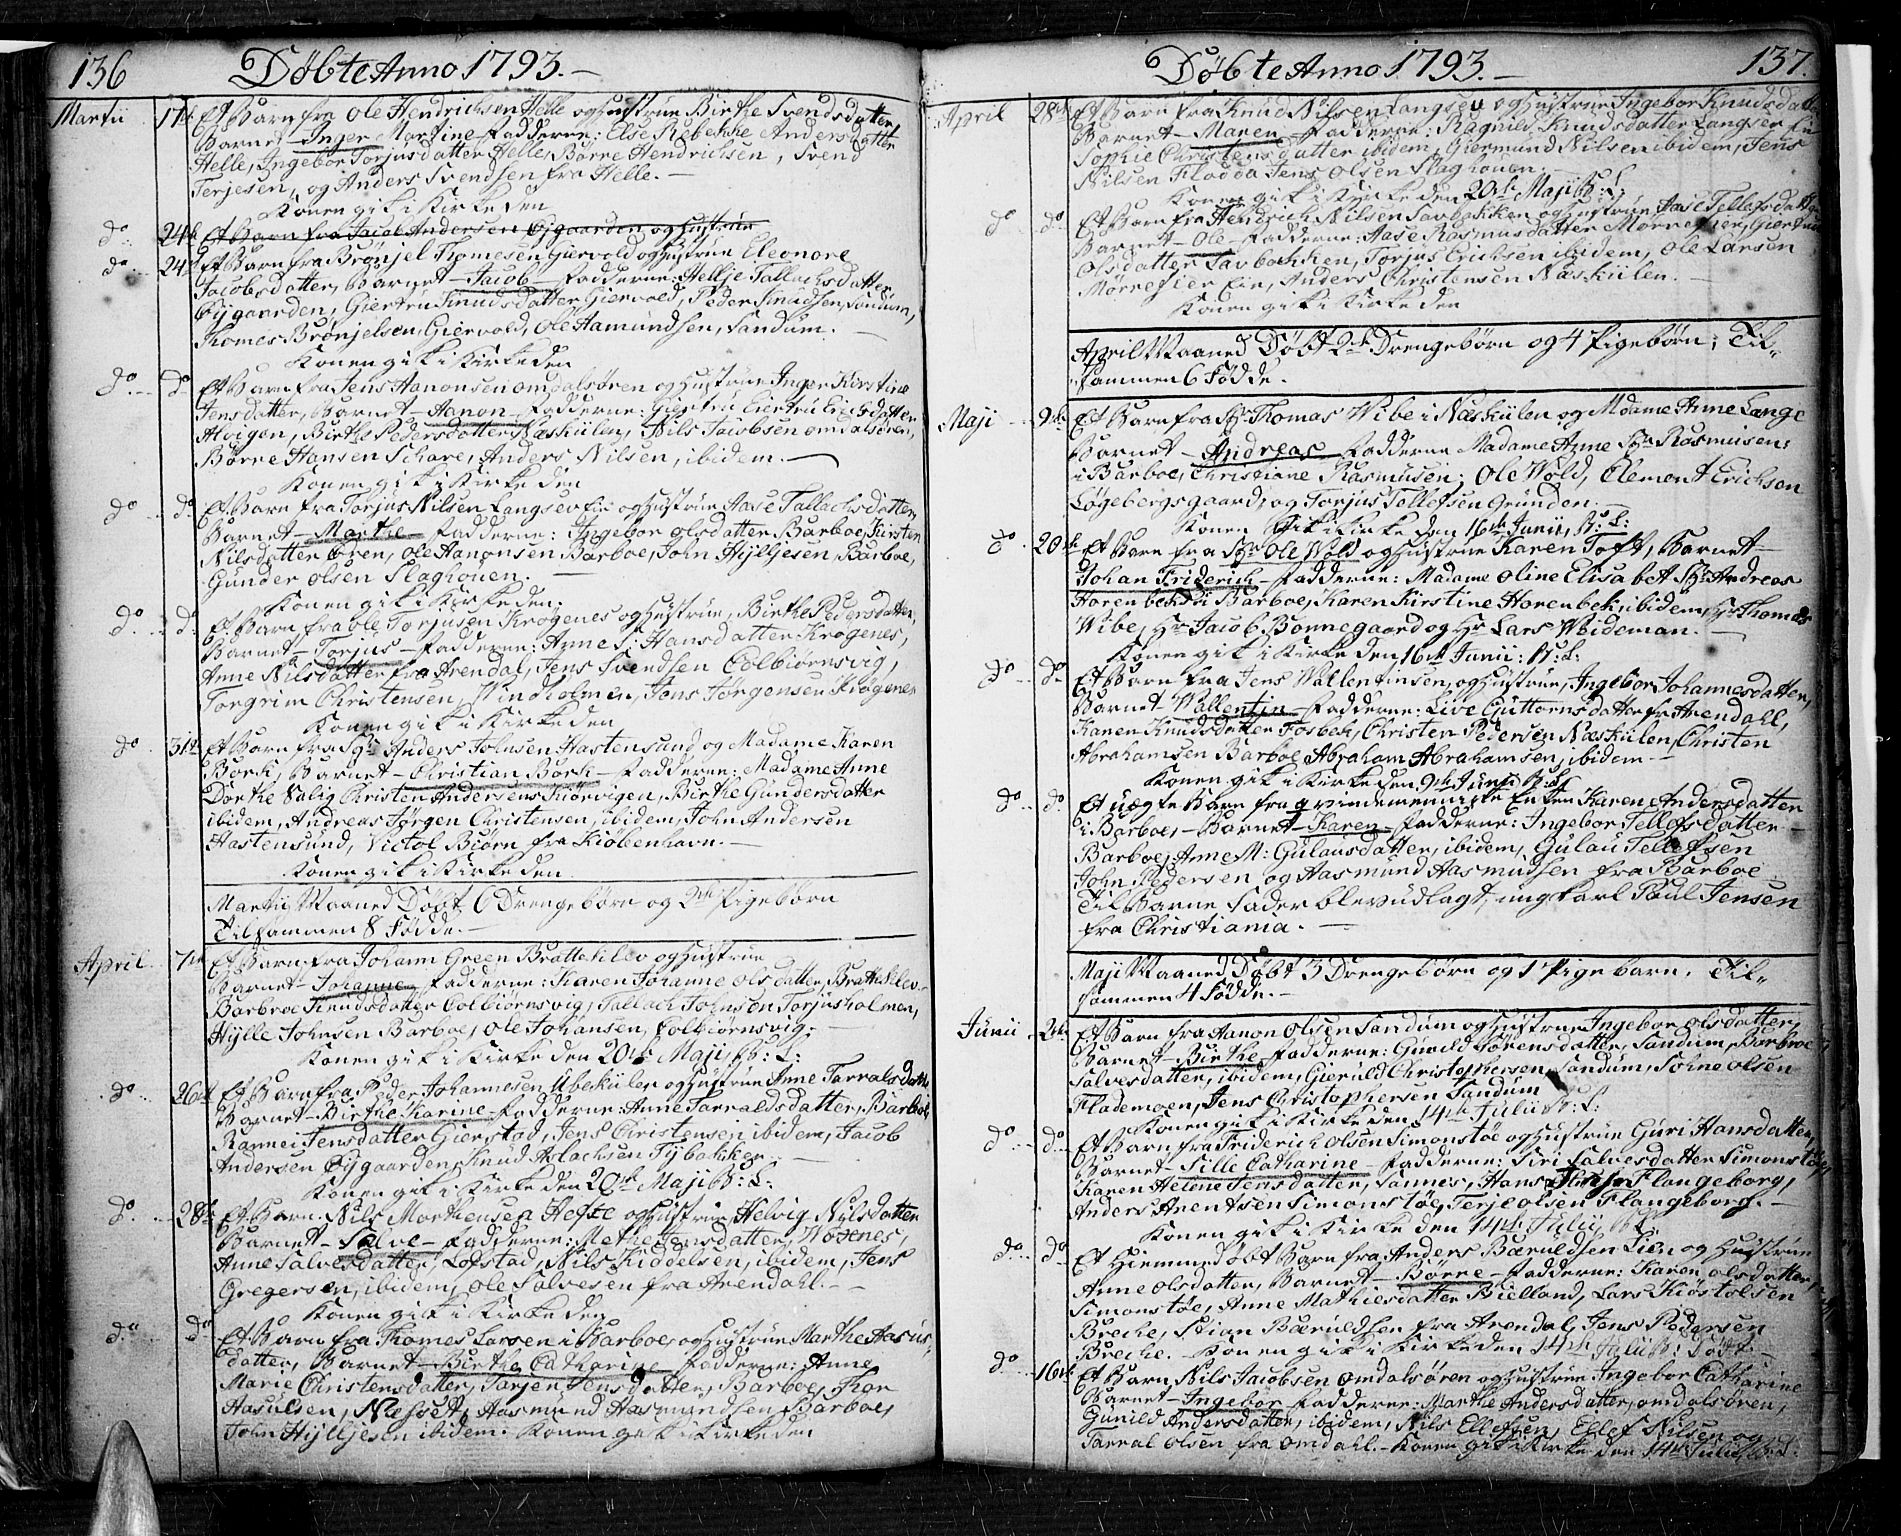 136
Döbte Anno 1793.
Martii 17de Et Barn fra Ole Hendrichsen Helle og Hustrue Birthe Svendsdatter,
Barnet Inger Martine Fadderne: Else Rebekke Andersdatter
Helle, Ingebor Torjusdatter Helle, Börre Hendrichsen, Svend
Terjesen, og Anders Svendsen fra Helle.
Konen gik i Kirke den
do 24de Et Barn fra Jacob Andersen Öygaarden og Hustrüe
do 24de Et Barn fra Brönjel Thomesen Giervold og Hustrue Eleonore
Jacobsdatter, Barnet Jacob Fadderne: Hellje Tallachsdatter
Öijgaarden, Giertru Knudsdatter Giervold, Peder Knudsen, Sandum,
Thomes Brönjelsen, Giervold, Ole Aamundsen, Sandum.
Konen gik i Kirke den
do do Et Barn fra Jens Aanonsen Omdalsören og Hustrue Inger Kirstine
Jensdatter, Barnet Aanon Fadderne: Giertru
Alvigen, Birthe Pedersdatter Næskilen, Nils Jacobsen Omdalsören,
Börre Hansen Schare, Anders Nilsen, ibidem.
Konen gik i Kirke den
do do Et Barn fra Torjus Nilsen Langsev Eie og Hustrue Aase Tallachsdatter,
Barnet Marthe Fadderne: Ingebor Olsdatter Barboe, Kirsten
Nilsdatter Ören, Ole Aanonsen Barboe, John Hyljesen, Barboe,
Gunder Olsen Slaghouen.
Konen gik i Kirke den:
do do Et Barn fra Ole Torjusen Krögenes og Hustrue, Birthe Pedersdatter,
Barnet Torjus Fadderne: Anne S. Hansdatter Krogenes,
Anne Nilsdatter fra Arendal, Jens Svendsen Colbiörnsvig,
Torgrim Christensen, Windholmen, Jens Jörgensen Krögenes
Konen gik i Kirke den
do 31te Et Barn fra Sr Anders Johnsen Hastensund og Madame Karen
Bork, Barnet Christian Bork Fadderne: Madame Anne
Dorthe Salig Christen Andersens Kiörvigen, Birthe Gundersdatter
ibidem, Andreas Jörgen Christensen, ibidem, John Andersen
Hastensund, Victol Biörn fra Kiöbenhavn.
Konen gik i Kirke den
Martii Maaned Döbt 6 Drengebörn og 2de Pigebörn
Tilsammen 8 Födde.
April 7de Et Barn fra Johann Green Brattekllev og Hustrue
Barnet Johanne Fadderne: Karen Johanne Olsdatter, Brattekllev
Barbroe Knudsdatter Colbiörnsvig, Tallach Johnsen Torjusholmen,
Hylle Johnsen Barboe, Ole Johansen, Colbiörnsvig.
Konen gik i Kirke den 20de Maji, B: L:
do 26de Et Barn fra Peder Johannesen Ubekilen og Hustrue Anne Tarralsdatter
Barnet Birthe Karine Fadderne: Anne Tarraldsdatter, Barboe,
Rannei Jensdatter Gierstad, Jens Christensen ibidem, Jacob
Andersen Öygaarden, Knud Aslachsen Tybakken.
Konen gik i Kirke den 20de Maji B: L:
do 28de Et Barn Nils Mathiesen Hefte og Hustrue, Helvig Nilsdatter
Barnet Salve Fadderne: Methe Jensdatter, Woxenes,
Anne Salvesdatter, Lofstad, Nils Kiddelsen, ibidem, Jens
Gregersen, ibidem, Ole Salvesen fra Arendahl.
Konen gik i Kirke den
do do Et Barn fra Thomes Larsen i Barboe, og Hustrue Marthe Aasus-
datter, Barnet Birthe Catharine Fadderne: Anne
Marie Christensdatter, Tarjer Jensdatter, Barboe, Thor
Hasulsen, Næsset, Aasmund Aasmundsen Barboe,
John Hylljesen ibidem. Konen gik i Kirke den
Döbte Anno 1793.
137.
April 28de Et Barn fra Knud Nilsen Langsev og Hustrue Ingebor Knudsdatter
Barnet Maren Fadderne: Ragnild Knudsdatter Langsev Eie
Sophie Christensdatter ibidem, Giermund Nilsen ibidem, Jens
Nilsen Flodda Jens Olsen Slaghouen.
Konen gik i Kirke den 20de Maji B: L:
do do Et Barn fra Hendrich Nilsen Lavbakken og Hustrue Aase Tellefsdatter
Barnet Ole Fadderne: Aase Rasmusdatter Mörnesier, Giertrue
Olsdatter Lavbakken, Torjus Erichsen ibidem, Ole Larsen
Mörnesier Eie, Anders Christensen Næskiilen.
Konen gik i Kirke den
April Maaned Döbt 2de Drengebörn og 4 Pigebörn, Til-
sammen 6 Födde.
Maji 9de Et Barn fra Sr Thomas Wibe i Næskiilen og Madame Anne Lange
Barnet Andreas Fadderne Madame Anne Sr Rasmusen:
i Barboe, Christiane Rasmusen, Ole Wold, Clement Erichsen
Lögebergsgaard, og Torjus Tellefsen Gründen.
Konen Gik i Kirke den 16de Junii, B: L:
do 20de Et Barn fra Sr Ole Wold og Hustrue Karen Toft, Barnet
Johan Friderich Fadderne: Madame Oline Elisabet Sr Andreas
Horenbek i Barboe, Karen Kirstine Horenbek, ibidem, Hr Thomas
Wibe, Hr Jacob Bonnegaard og Hr Lars Weideman.
Konen gik i Kirke den 16de Junii: B: L:
do do Et Barn fra Jens Wallentinsen, og Hustrue, Ingebor Johannesdatter,
Barnet Wallentin Fadderne: Live Guttormsdatter fra Arendall,
Karen Knudsdatter Fosbek, Christen Pedersen Næskiilen, Christen
Abrahamsen Barboe Abraham Abrahamsen, ibidem
Konen gik i Kirke den 9de Junii B: L:
do do Et uægte Barn fra qvindemenniske Enken Karen Andersdatter
i Barboe, Barnet Karen Fadderne: Ingebor Tellefsdatter
Barboe, Anne M: Gulausdatter, ibidem, Gulau Tellefsen
John Pedersen og Aasmund Aasmundsen fra Barboe
Til Barne Fader blev udlagt, ungkarl Poul Jensen
fra Christiania.
Maji Maaned Döbt 3 Drengebörn og 1 Pigebarn. Til-
sammen 4 Födde.
Junii 2de Et Barn fra Aanon Olsen Sandum og Hustrue Ingebor Olsdatter,
Barnet Birthe Fadderne: Gunild Sörensdatter, Sandum, Barbroe
Salvesdatter, ibidem, Gieruld Christophersen, Sandum, Sohne Olsen
Flademoen, Jens Christophersen Sandum
Konen gik i Kirke den 14de Julii B: L:
do do Et Barn fra Friderich Olsen Simonstöe og Hustrue Guri Hansdatter,
Barnet Sille Catharine Fadderne: Siri Salvesdatter Simonstöe,
Karen Helene Jensdatter, Sannes, Hans Flangeborg,
Anders Arentsen Simonstöe, Terje Olsen Flangeborg.
Konen gik i Kirke den 14de Julii, B: L:
do do Et Hiemmedöbt Barn fra Anders Bæruldsen Lien og Hustrue
Anne Olsdatter, Barnet Börre Fadderne: Karen Olsdatter,
Simonstöe, Anne Mathiesdatter Bielland, Lars Kiöstolsen
Breche, Stian Bæruldsen fra Arendal, Jens Pedersen
Breche. Konen gik i Kirke den 14de Julii B:
do 16de Et Barn Nils Jacobsen Omdalsören og Hustrue Ingebor Catharine
Barnet Ingebor Fadderne: Marthe Andersdatter, Omdalsören,
Gunild Andersdatter, ibidem, Nils Ellefsen, Ellef Nilsen og
Tarral Olsen fra Omdahl. Konen gik i Kirke den 14de Julii, B: L: